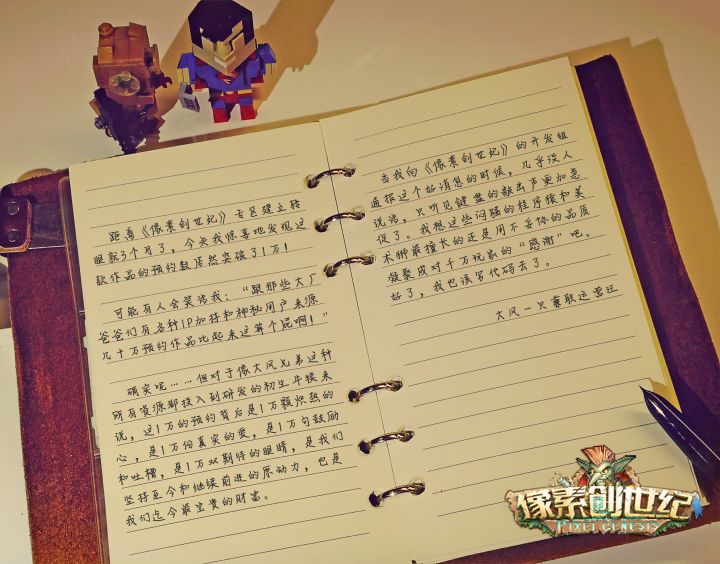 距离《像素创世纪》专区建立转
眼就3个月了，今天我惊喜地发现这
款作品的预约数居然突破了1万！
可能有人会笑话我：“跟那些大厂
爸爸们有各种IP加持和神秘用户来源
几十万预约作品比起来这算个屁啊！”
确实呢……但对于像大风兄弟这种
所有资源都投入到研发的初生牛犊来
说，这1万的预约背后是1万颗炽热的
心，是1万份真实的爱，是1万句鼓励
和吐槽，是1万双期待的眼睛，是我们
坚持至今和继续前进的原动力，也是
我们迄今最宝贵的财富。
当我向《像素创世纪》的开发组
通报这个好消息的时候，几乎没人
说话，只听见键盘的敲击声更加急
促了。我想这些闷骚的程序猿和美
术狮最擅长的还是用不妥协的品质
凝聚成对千万玩家的“感谢”吧。
好了，我也该写代码去了。
大风一只兼职运营汪
像素创世纪
PIXEL GENESIS